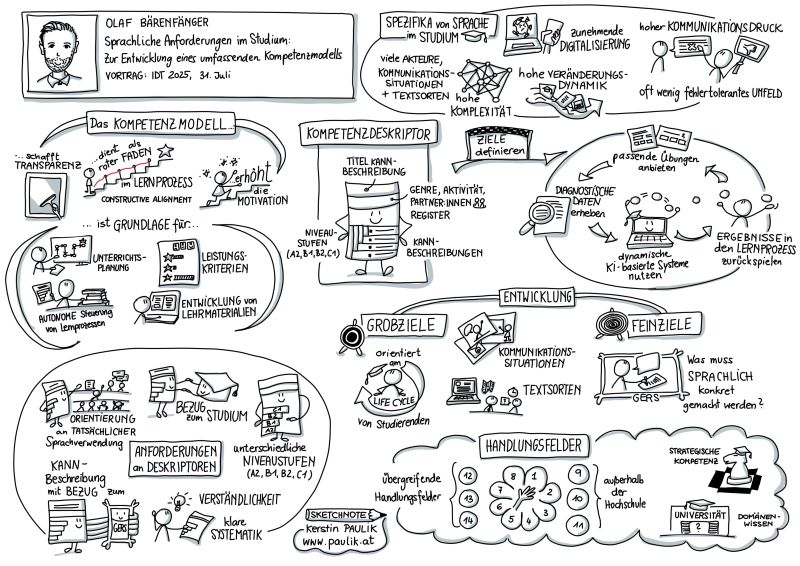 OLAF BÄRENFÄNGER
Sprachliche Anforderungen im Studium:
Zur Entwicklung eines umfassenden Kompetenzmodells
VORTRAG: IDT 2025, 31. Juli
SPEZIFIKA von SPRACHE
im STUDIUM
zunehmende
DIGITALISIERUNG
hoher KOMMUNIKATIONSDRUCK
oft wenig fehlertolerantes UMFELD
viele AKTEURE,
KOMMUNIKATIONS-
SITUATIONEN
+ TEXTSORTEN
hohe
KOMPLEXITÄT
hohe VERÄNDERUNGS-
DYNAMIK
Das KOMPETENZMODELL...
...schafft
TRANSPARENZ
...dient als
roter FADEN
im LERNPROZESS
CONSTRUCTIVE ALIGNMENT
...erhöht
die
MOTIVATION
... ist GRUNDLAGE für...
UNTERRICHTS-
PLANUNG
LEISTUNGS-
KRITERIEN
AUTONOME Steuerung
von Lernprozessen
ENTWICKLUNG von
LEHRMATERIALIEN
KOMPETENZDESKRIPTOR
TITEL KANN-
BESCHREIBUNG
GENRE, AKTIVITÄT,
PARTNER:INNEN
REGISTER
NIVEAU-
STUFEN
(A2, B1, B2, C1)
KANN-
BESCHREIBUNGEN
ZIELE
definieren
passende Übungen
anbieten
DIAGNOSTISCHE
DATEN
erheben
dynamische
KI-basierte SYSTEME
nutzen
ERGEBNISSE in
den LERNPROZESS
zurückspielen
ENTWICKLUNG
GROBZIELE
FEINZIELE
orientiert
am
LIFE CYCLE
von Studierenden
KOMMUNIKATIONS-
SITUATIONEN
TEXTSORTEN
GERS
Was muss
SPRACHLICH
konkret
gemacht werden?
ORIENTIERUNG
an TATSÄCHLICHER
Sprachverwendung
BEZUG
zum STUDIUM
C1
B2
B1
A2
unterschiedliche
NIVEAUSTUFEN
(A2, B1, B2, C1)
ANFORDERUNGEN
an DESKRIPTOREN
KANN-
Beschreibung
mit BEZUG zum
GERS
VERSTÄNDLICHKEIT
klare
SYSTEMATIK
SKETCHNOTE
Kerstin PAULIK
www.paulik.at
HANDLUNGSFELDER
übergreifende
Handlungsfelder
12
13
14
1
2
3
4
5
6
7
8
9
10
11
außerhalb
der
Hochschule
STRATEGISCHE
KOMPETENZ
UNIVERSITÄT
?
DOMÄNEN-
WISSEN